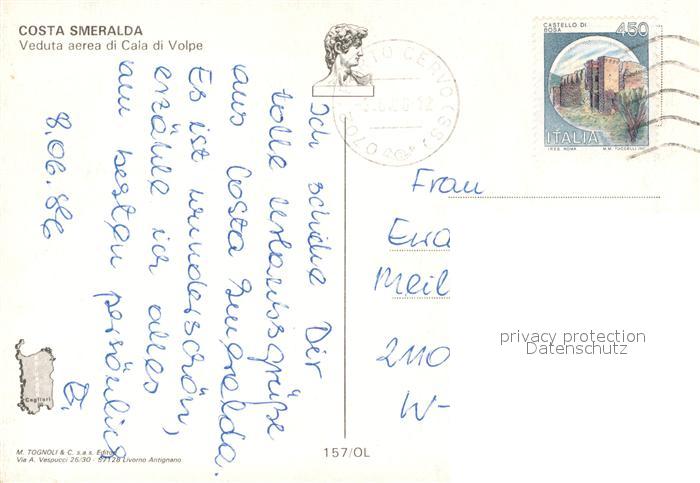 COSTA SMERALDA
Veduta aerea di Cala di Volpe
Ich schicke Dir
tolle Urlaubsgrüße
aus Costa Smeralda.
Es ist wunderschön,
erzähle ich alles
am besten persönlich
8.06.86
B.
Cagliari
M. TOGNOLI & C. s.a.s. Editori
Via A. Vespucci 26/30 - 57128 Livorno Antignano
157/OL
PORTO CERVO (SS)
07020
CASTELLO DI
BOSA
450
ITALIA
I.P.Z.S. ROMA
Frau
Meil
2110
W-
privacy protection
Datenschutz